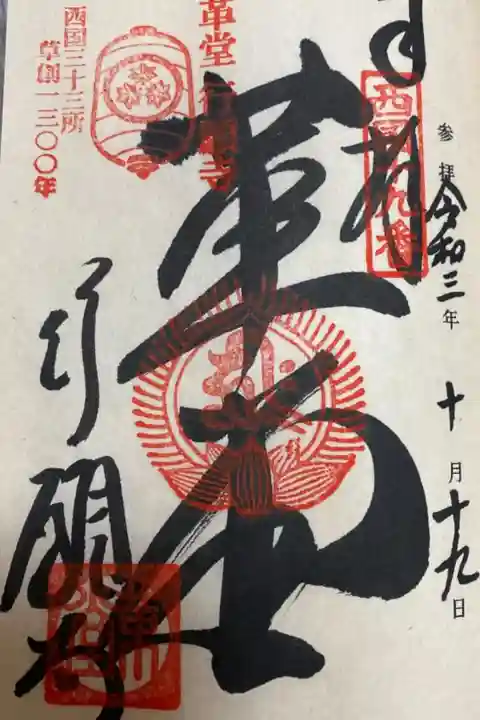 参拝 令和三年 十月十九日
奉拝
西国十九番
革堂
革堂 行願寺
西国三十三所
草創一三〇〇年
行願寺